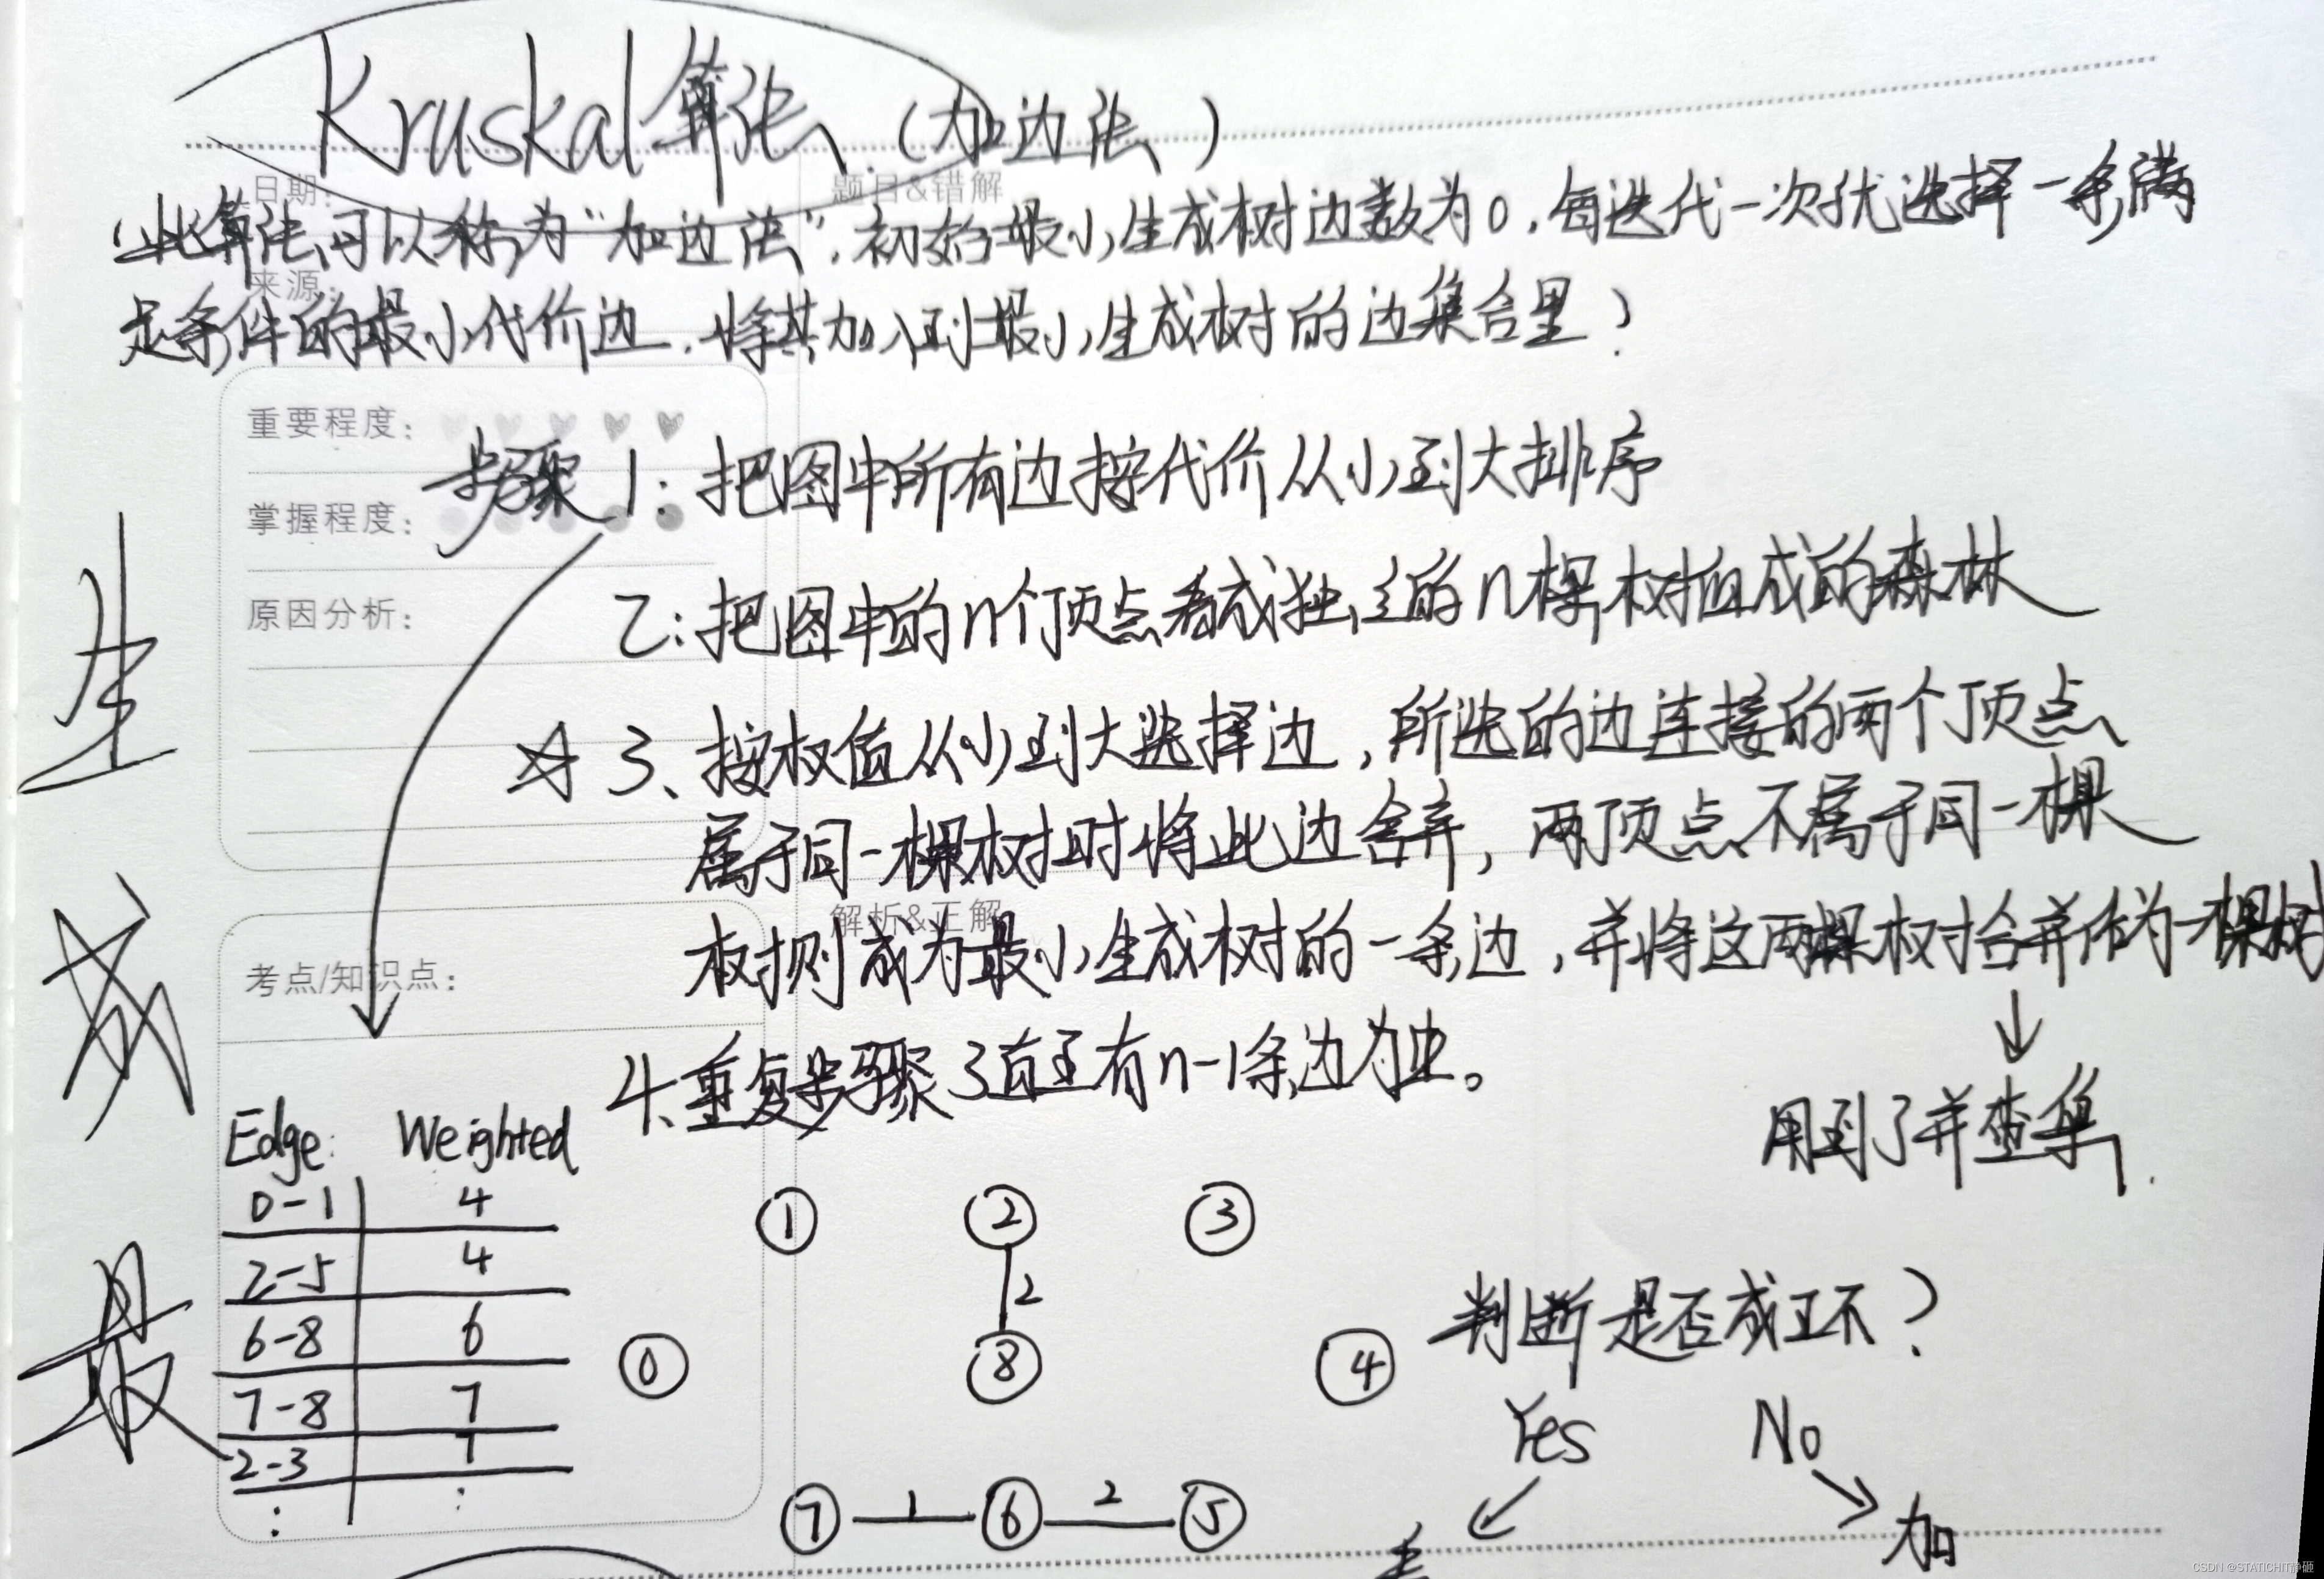 Kruskal算法.(加边法)
日期:
题目&错解
此算法可以称为“加边法”.初始最小生成树边数为0,每迭代一次优选择一条满
来源:
足条件的最小代价边.将其加入到最小生成树的边集合里?
重要程度:
步骤1:把图中所有边按代价从小到大排序
掌握程度:
2:把图中的n个顶点看成独立的n棵树组成的森林
原因分析:
☆3、按权值从小到大选择边,所选的边连接的两个顶点
属于同一棵树时将此边舍弃,两顶点不属于同一棵
解析&正解
树则成为最小生成树的一条边,并将这两棵树合并作为一棵树
考点/知识点:
↓
4.重复步骤3直至有n-1条边为止。
用到了并查集.
生
成
最
Edge: Weighted
0-1 4
2-5 4
6-8 6
7-8 7
2-3 7
: :
1 2 3
2
0 8 4
7 1 6 2 5
判断是否成环?
Yes No
丢 加
CSDN @STATICHIT静砸